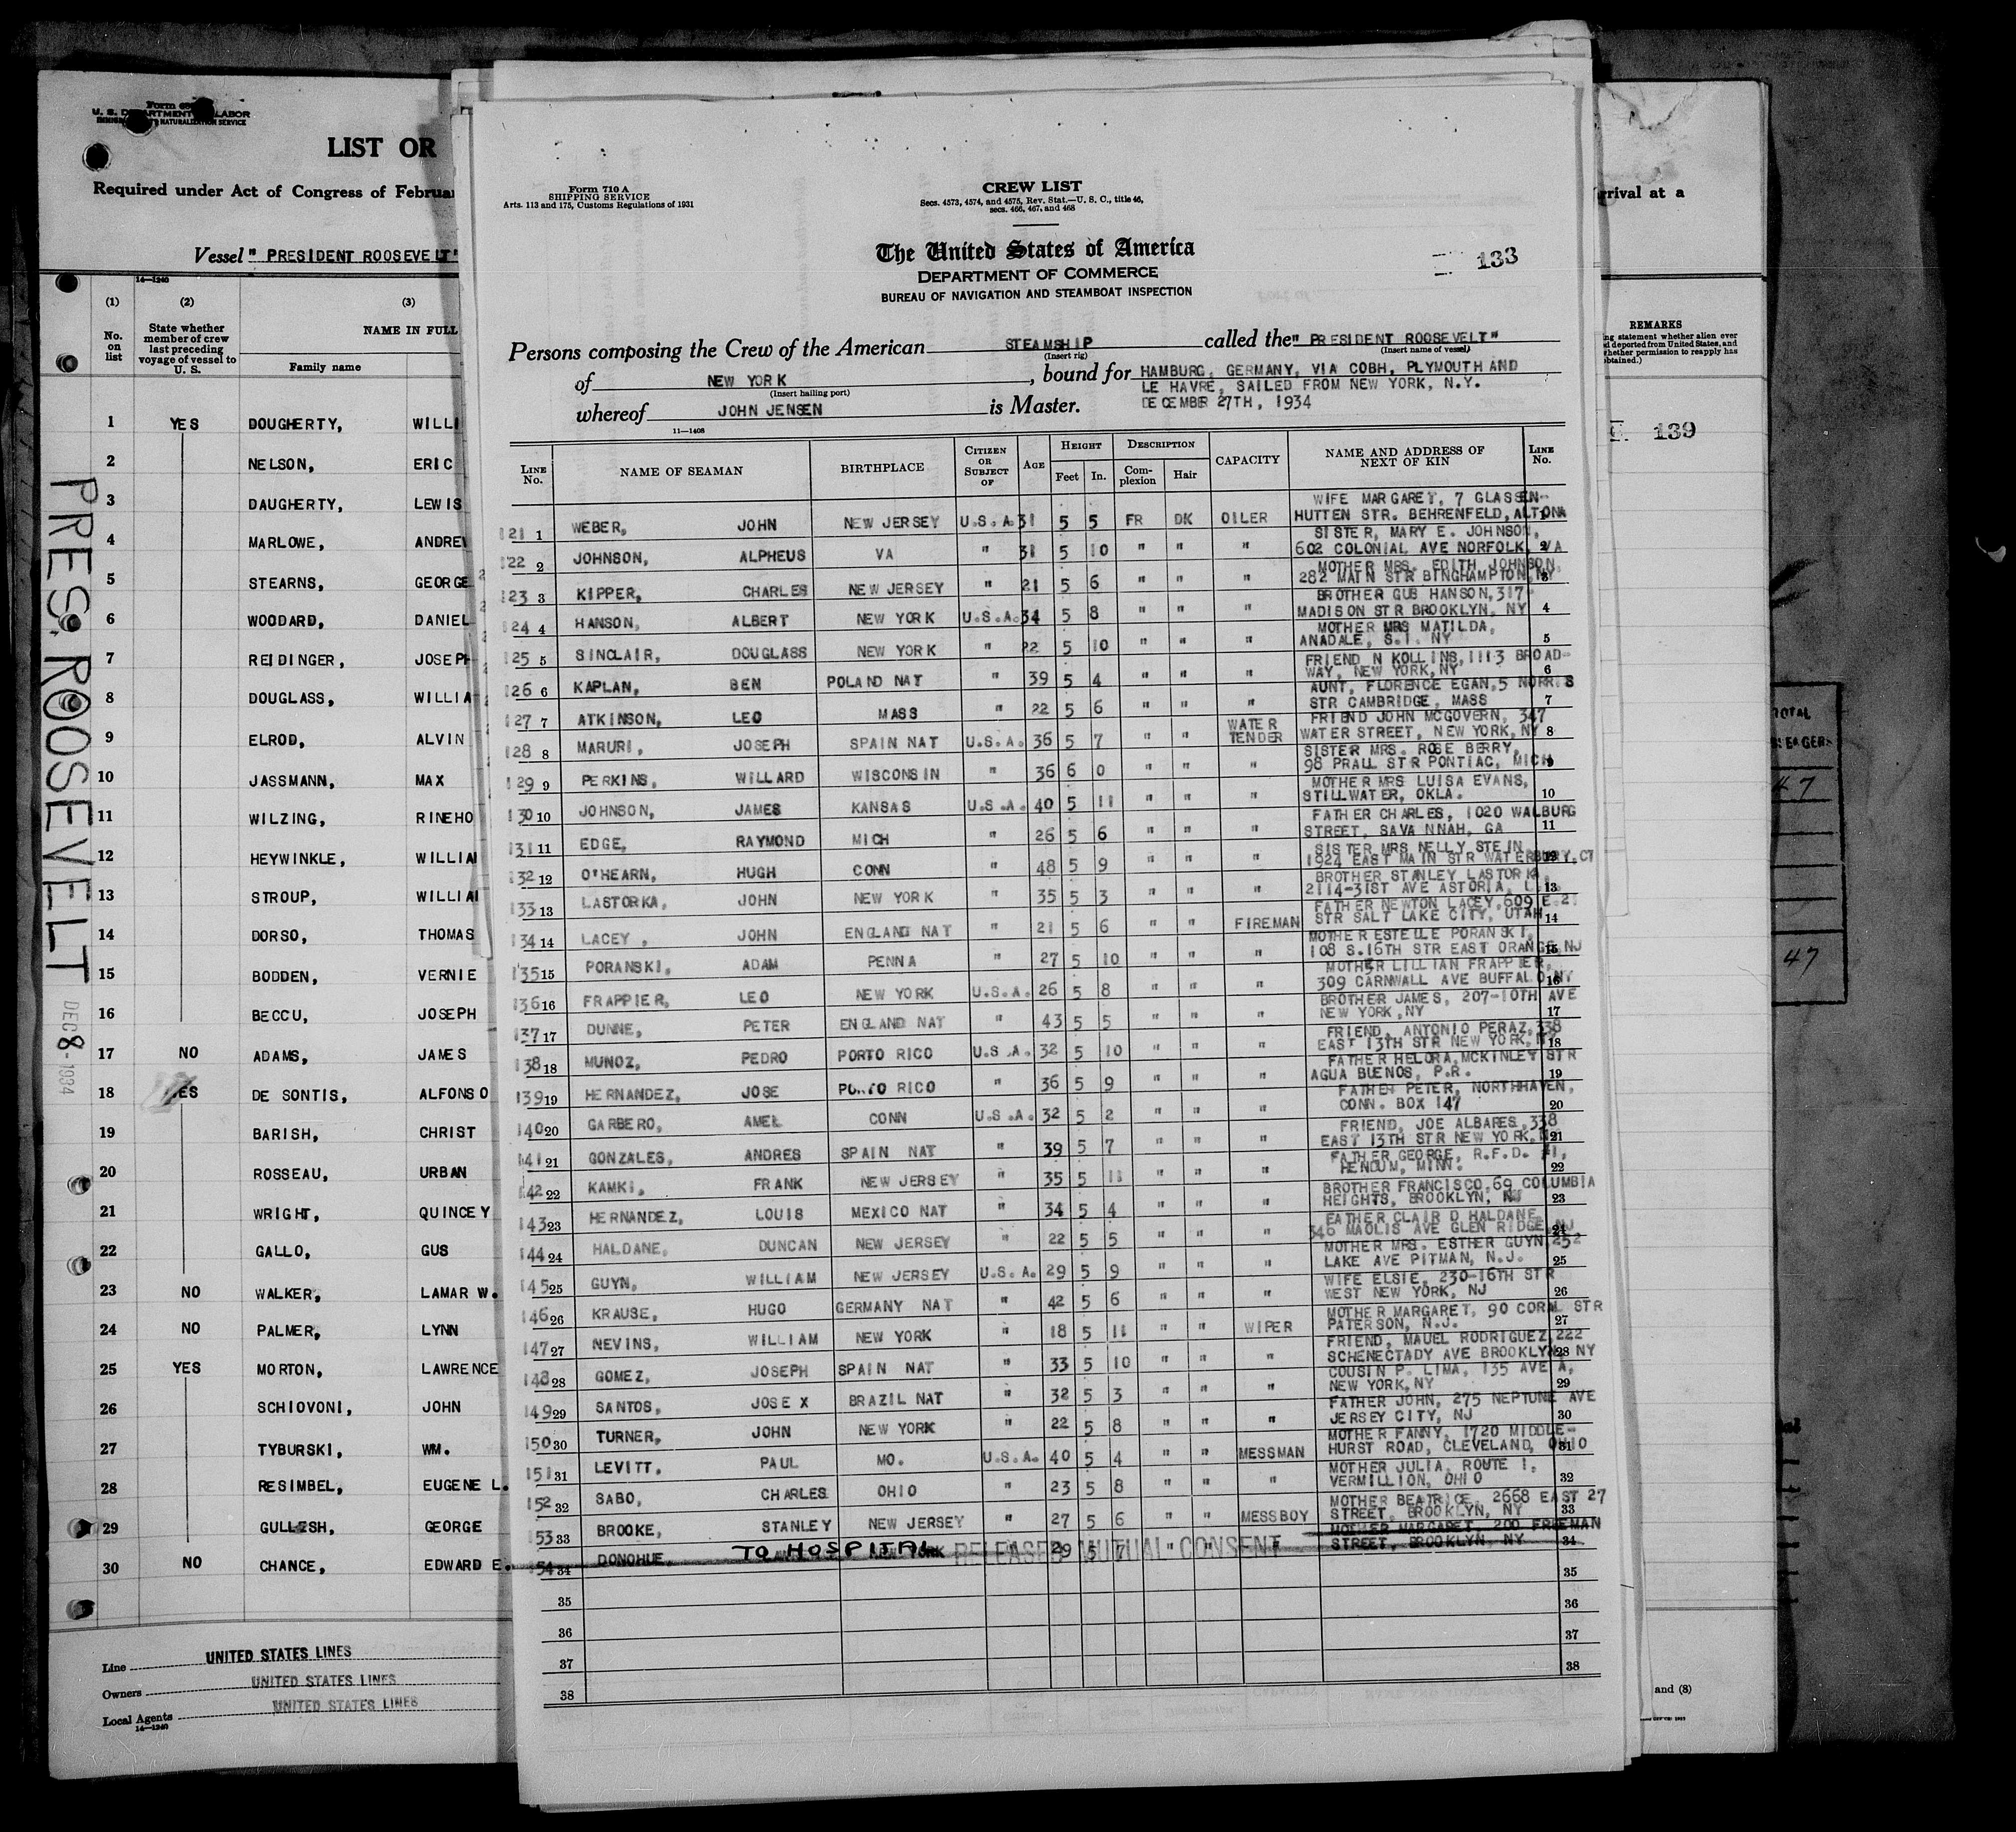 Form 710 A
SHIPPING SERVICE
Arts. 113 and 175, Customs Regulations of 1931
CREW LIST
Secs. 4573, 4574, and 4575, Rev. Stat.—U. S. C., title 46,
secs. 466, 467, and 468
The United States of America
DEPARTMENT OF COMMERCE
BUREAU OF NAVIGATION AND STEAMBOAT INSPECTION
133
Persons composing the Crew of the American STEAMSHIP called the "PRESIDENT ROOSEVELT"
(Insert rig) (Insert name of vessel)
of NEW YORK, bound for HAMBURG, GERMANY, VIA COBH, PLYMOUTH AND
(Insert hailing port) LE HAVRE, SAILED FROM NEW YORK, N.Y.
whereof JOHN JENSEN is Master. DECEMBER 27TH, 1934
11—1408
LINE No. NAME OF SEAMAN BIRTHPLACE CITIZEN OR SUBJECT OF AGE HEIGHT Feet In. DESCRIPTION Complexion Hair CAPACITY NAME AND ADDRESS OF NEXT OF KIN LINE No.
121 1 WEBER, JOHN NEW JERSEY U.S.A. 31 5 5 FR DK OILER WIFE MARGARET, 7 GLASSEN- HUTTEN STR. BEHRENFELD, ALTONA
122 2 JOHNSON, ALPHEUS VA " 31 5 10 " " " SISTER, MARY E. JOHNSON, 602 COLONIAL AVE NORFOLK, VA 2
123 3 KIPPER, CHARLES NEW JERSEY " 21 5 6 " " " MOTHER MRS. EDITH JOHNSON, 282 MAIN STR BINGHAMPTON, NY 3
124 4 HANSON, ALBERT NEW YORK U.S.A. 34 5 8 " " " BROTHER GUS HANSON, 317 MADISON STR BROOKLYN, NY 4
125 5 SINCLAIR, DOUGLASS NEW YORK " 22 5 10 " " " MOTHER MRS MATILDA, ANADALE, S.I. NY 5
126 6 KAPLAN, BEN POLAND NAT " 39 5 4 " " " FRIEND N KOLLINS, 1113 BROAD- WAY, NEW YORK, NY 6
127 7 ATKINSON, LEO MASS " 22 5 6 " " " AUNT, FLORENCE EGAN, 5 NORRIS STR CAMBRIDGE, MASS 7
128 8 MARURI, JOSEPH SPAIN NAT U.S.A. 36 5 7 " " WATER TENDER FRIEND JOHN MCGOVERN, 347 WATER STREET, NEW YORK, NY 8
129 9 PERKINS, WILLARD WISCONSIN " 36 6 0 " " " SISTER MRS. ROSE BERRY, 98 PRALL STR PONTIAC, MICH 9
130 10 JOHNSON, JAMES KANSAS U.S.A. 40 5 11 " " " MOTHER MRS LUISA EVANS, STILLWATER, OKLA. 10
131 11 EDGE, RAYMOND MICH " 26 5 6 " " " FATHER CHARLES, 1020 WALBURG STREET, SAVANNAH, GA 11
132 12 O'HEARN, HUGH CONN " 48 5 9 " " " SISTER MRS NELLY STEIN 1924 EAST MAIN STR WATERBURY, CT
133 13 LASTORKA, JOHN NEW YORK " 35 5 3 " " " BROTHER STANLEY LASTORKA, 2114-31ST AVE ASTORIA, 13
134 14 LACEY, JOHN ENGLAND NAT " 21 5 6 " " FIREMAN FATHER NEWTON LACEY, 609 E. STR SALT LAKE CITY, UTAH 14
135 15 PORANSKI, ADAM PENNA " 27 5 10 " " " MOTHER ESTELLE PORANSKI, 108 S.16TH STR EAST ORANGE, NJ 15
136 16 FRAPPIER, LEO NEW YORK U.S.A. 26 5 8 " " " MOTHER LILLIAN FRAPPIER, 309 CARNWALL AVE BUFFALO, NY 16
137 17 DUNNE, PETER ENGLAND NAT " 43 5 5 " " " BROTHER JAMES, 207-10TH AVE NEW YORK, NY 17
138 18 MUNOZ, PEDRO PORTO RICO U.S.A. 32 5 10 " " " FRIEND, ANTONIO PERAZ, 338 EAST 13TH STR NEW YORK, 18
139 19 HERNANDEZ, JOSE PORTO RICO " 36 5 9 " " " FATHER HELORA, MCKINLEY STR AGUA BUENOS, P.R. 19
140 20 GARBERO, AMEL CONN U.S.A. 32 5 2 " " " FATHER PETER, NORTHHAVEN, CONN. BOX 147 20
141 21 GONZALES, ANDRES SPAIN NAT " 39 5 7 " " " FRIEND, JOE ALBARES, 338 EAST 13TH STR NEW YORK, 21
142 22 KAMKI, FRANK NEW JERSEY " 35 5 11 " " " FATHER GEORGE, R.F.D. #1, HENDUM, MINN. 22
143 23 HERNANDEZ, LOUIS MEXICO NAT " 34 5 4 " " " BROTHER FRANCISCO, 69 COLUMBIA HEIGHTS, BROOKLYN, 23
144 24 HALDANE, DUNCAN NEW JERSEY " 22 5 5 " " " FATHER CLAIR D HALDANE, 346 MAOLIS AVE GLEN RIDGE, NJ 24
145 25 GUYN, WILLIAM NEW JERSEY U.S.A. 29 5 9 " " " MOTHER MRS. ESTHER GUYN, 252 LAKE AVE PITMAN, N.J. 25
146 26 KRAUSE, HUGO GERMANY NAT " 42 5 6 " " " WIFE ELSIE, 230-16TH STR WEST NEW YORK, NJ 26
147 27 NEVINS, WILLIAM NEW YORK " 18 5 11 " " WIPER MOTHER MARGARET, 90 CORAL STR PATERSON, N.J. 27
148 28 GOMEZ, JOSEPH SPAIN NAT " 33 5 10 " " " FRIEND, MAUEL RODRIGUEZ, 222 SCHENECTADY AVE BROOKLYN, NY 28
149 29 SANTOS, JOSE X BRAZIL NAT " 32 5 3 " " " COUSIN P. LIMA, 135 AVE A, NEW YORK, NY 29
150 30 TURNER, JOHN NEW YORK " 22 5 8 " " " FATHER JOHN, 275 NEPTUNE AVE JERSEY CITY, NJ 30
151 31 LEVITT, PAUL MO. U.S.A. 40 5 4 " " MESSMAN MOTHER FANNY, 1720 MIDDLE- HURST ROAD, CLEVELAND, OHIO 31
152 32 SABO, CHARLES OHIO " 23 5 8 " " " MOTHER JULIA, ROUTE 1, VERMILLION, OHIO 32
153 33 BROOKE, STANLEY NEW JERSEY " 27 5 6 " " MESSBOY MOTHER BEATRICE, 2668 EAST 27 STREET, BROOKLYN, NY 33
154 34 DONOHUE, TO HOSPITAL NEW YORK RELEASED MUTUAL CONSENT 29 5 7 " " " MOTHER MARGARET, 200 FREEMAN STREET, BROOKLYN NY 34
35 35
36 36
37 37
38 38
Form
U. S. DEPARTMENT LABOR
NATURALIZATION SERVICE
LIST OR
Required under Act of Congress of Februa
Vessel "PRESIDENT ROOSEVELT"
14—1240
(1) (2) (3)
No. on list
State whether member of crew last preceding voyage of vessel to U. S.
NAME IN FULL
Family name
1 YES DOUGHERTY, WILLI
2 NELSON, ERIC
3 DAUGHERTY, LEWIS
4 MARLOWE, ANDREW
5 STEARNS, GEORGE
6 WOODARD, DANIEL
7 REIDINGER, JOSEPH
8 DOUGLASS, WILLIA
9 ELROD, ALVIN
10 JASSMANN, MAX
11 WILZING, RINEHO
12 HEYWINKLE, WILLIAM
13 STROUP, WILLIAM
14 DORSO, THOMAS
15 BODDEN, VERNIE
16 BECCU, JOSEPH
17 NO ADAMS, JAMES
18 YES DE SONTIS, ALFONSO
19 BARISH, CHRIST
20 ROSSEAU, URBAN
21 WRIGHT, QUINCEY
22 GALLO, GUS
23 NO WALKER, LAMAR W.
24 NO PALMER, LYNN
25 YES MORTON, LAWRENCE
26 SCHIOVONI, JOHN
27 TYBURSKI, WM.
28 RESIMBEL, EUGENE L.
29 GULLESH, GEORGE
30 NO CHANCE, EDWARD E.
Line UNITED STATES LINES
Owners UNITED STATES LINES
Local Agents UNITED STATES LINES
14—1240
PRES. ROOSEVELT
DEC 8-1934
rrival at a
REMARKS
ng statement whether alien ever
d deported from United States, and
hether permission to reapply has
btained.)
139
TOTAL
47
47
and (8)